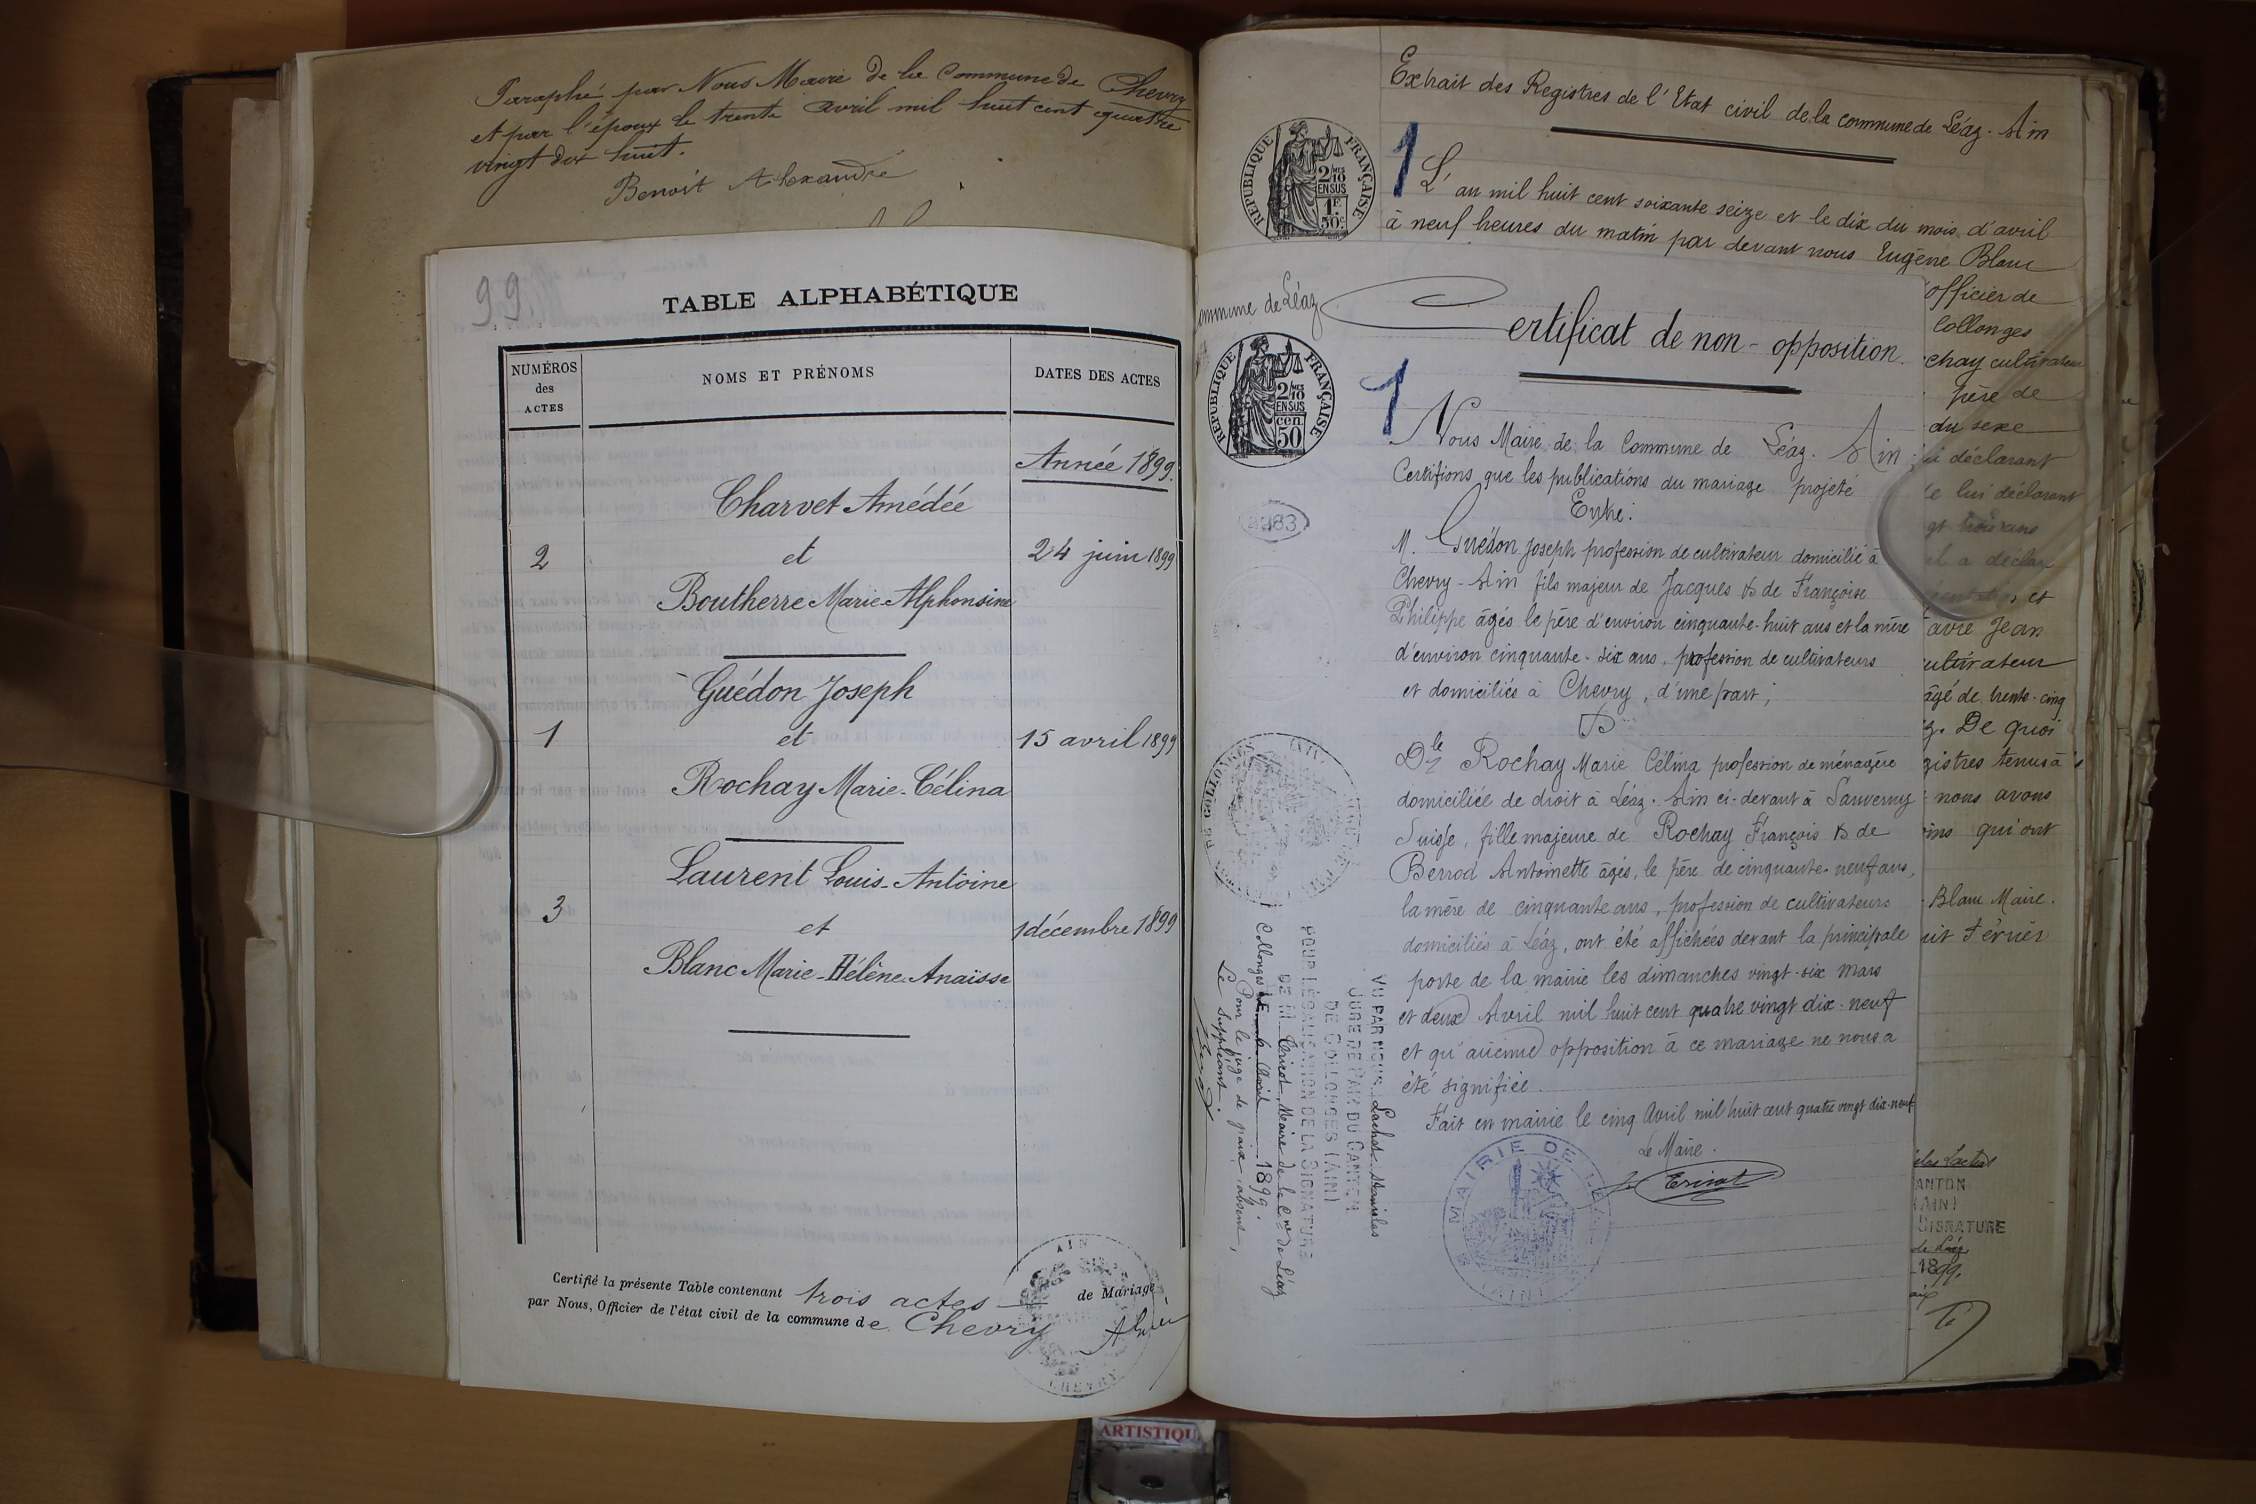 Paraphé par Nous Maire de la Commune de Chevry
et par l'époux le trente avril mil huit cent quatre
vingt dix huit.
Benoit Alexandre
99
TABLE ALPHABÉTIQUE
NUMÉROS
des
ACTES
NOMS ET PRÉNOMS
DATES DES ACTES
Année 1899.
Charvet Amédée
2 et 24 juin 1899
Boutherre Marie-Alphonsine
Guédon Joseph
1 et 15 avril 1899
Rochay Marie-Célina
Laurent Louis-Antoine
3 et 1 décembre 1899
Blanc Marie-Hélène-Anaïsse
Certifié la présente Table contenant trois actes de Mariage
par Nous, Officier de l'état civil de la commune de Chevry
AIN
CHEVRY
Extrait des Registres de l'Etat civil de la commune de Léaz. Ain
RÉPUBLIQUE FRANÇAISE
2/10 MES
EN SUS
1F
50c
1
L'an mil huit cent soixante seize et le dix du mois d'avril
à neuf heures du matin par devant nous Eugène Blanc
officier de
Collonges
chay cultivateur
père de
du sexe
déclarant
lui déclarant
il a déclar
et
Jean
cultivateur
âgé de trente-cinq
De quoi
gistres tenus à
nous avons
ins qui ont
Blanc Maire.
ANTON
(AIN)
SIGNATURE
de Léaz
1899.
Commune de Léaz
RÉPUBLIQUE FRANÇAISE
2/10 MES
EN SUS
cen.
50
Certificat de non-opposition.
1
Nous Maire de la Commune de Léaz. Ain
Certifions que les publications du mariage projeté
Entre:
M. Guédon Joseph profession de cultivateur domicilié à
Chevry-Ain fils majeur de Jacques & de Françoise
Philippe âgés le père d'environ cinquante-huit ans et la mère
d'environ cinquante-six ans, profession de cultivateurs
et domiciliés à Chevry, d'une part;
&
Dlle Rochay Marie Célina profession de ménagère
domiciliée de droit à Léaz. Ain ci-devant à Sauverny
Suisse, fille majeure de Rochay François & de
Berrod Antoinette âgés, le père de cinquante-neuf ans,
la mère de cinquante ans, profession de cultivateurs
domiciliés à Léaz, ont été affichées devant la principale
porte de la mairie les dimanches vingt-six mars
et deux Avril mil huit cent quatre vingt dix-neuf
et qu'aucune opposition à ce mariage ne nous a
été signifiée.
Fait en mairie le cinq Avril mil huit cent quatre vingt dix-neuf
Le Maire.
MAIRIE DE LÉAZ
AIN
VU PAR NOUS, Lachat Stanislas
JUGE DE PAIX DU CANTON
DE COLLONGES (AIN)
POUR LÉGALISATION DE LA SIGNATURE
DE M. Maire de la Cne de Léaz
Collonges LE 6 Avril 1899.
Pour le juge de paix absent,
Le suppléant.
ARTISTIQU